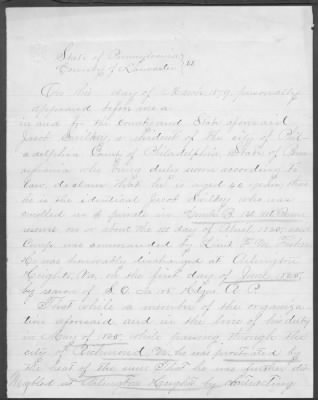 State of Pennsylvania
County of Lancaster } SS
On this day of March 1879, personally
appeared before me a
in and for the County and State aforesaid
Jacob a resident of the city of Phil-
adelphia County of Philadelphia State of Penn
sylvania who being duly sworn according to
law, declares that he is aged 42 years, that
he is the identical Jacob who was
enrolled as a private in
on or about the 1st day of April 1865, said
Comp. was commanded by Lieut F. M.
He was honorably discharged at Arlington
Heights, Va, on the first day of June 1865,
by reason of S. O. No
That while a member of the organiza
tion aforesaid and in the line of his duty
in May of 1865 while passing through the
city of Richmond Va. he was prostrated by
the heat of the sun. That he was further dis
abled at Arlington Heights by contracting